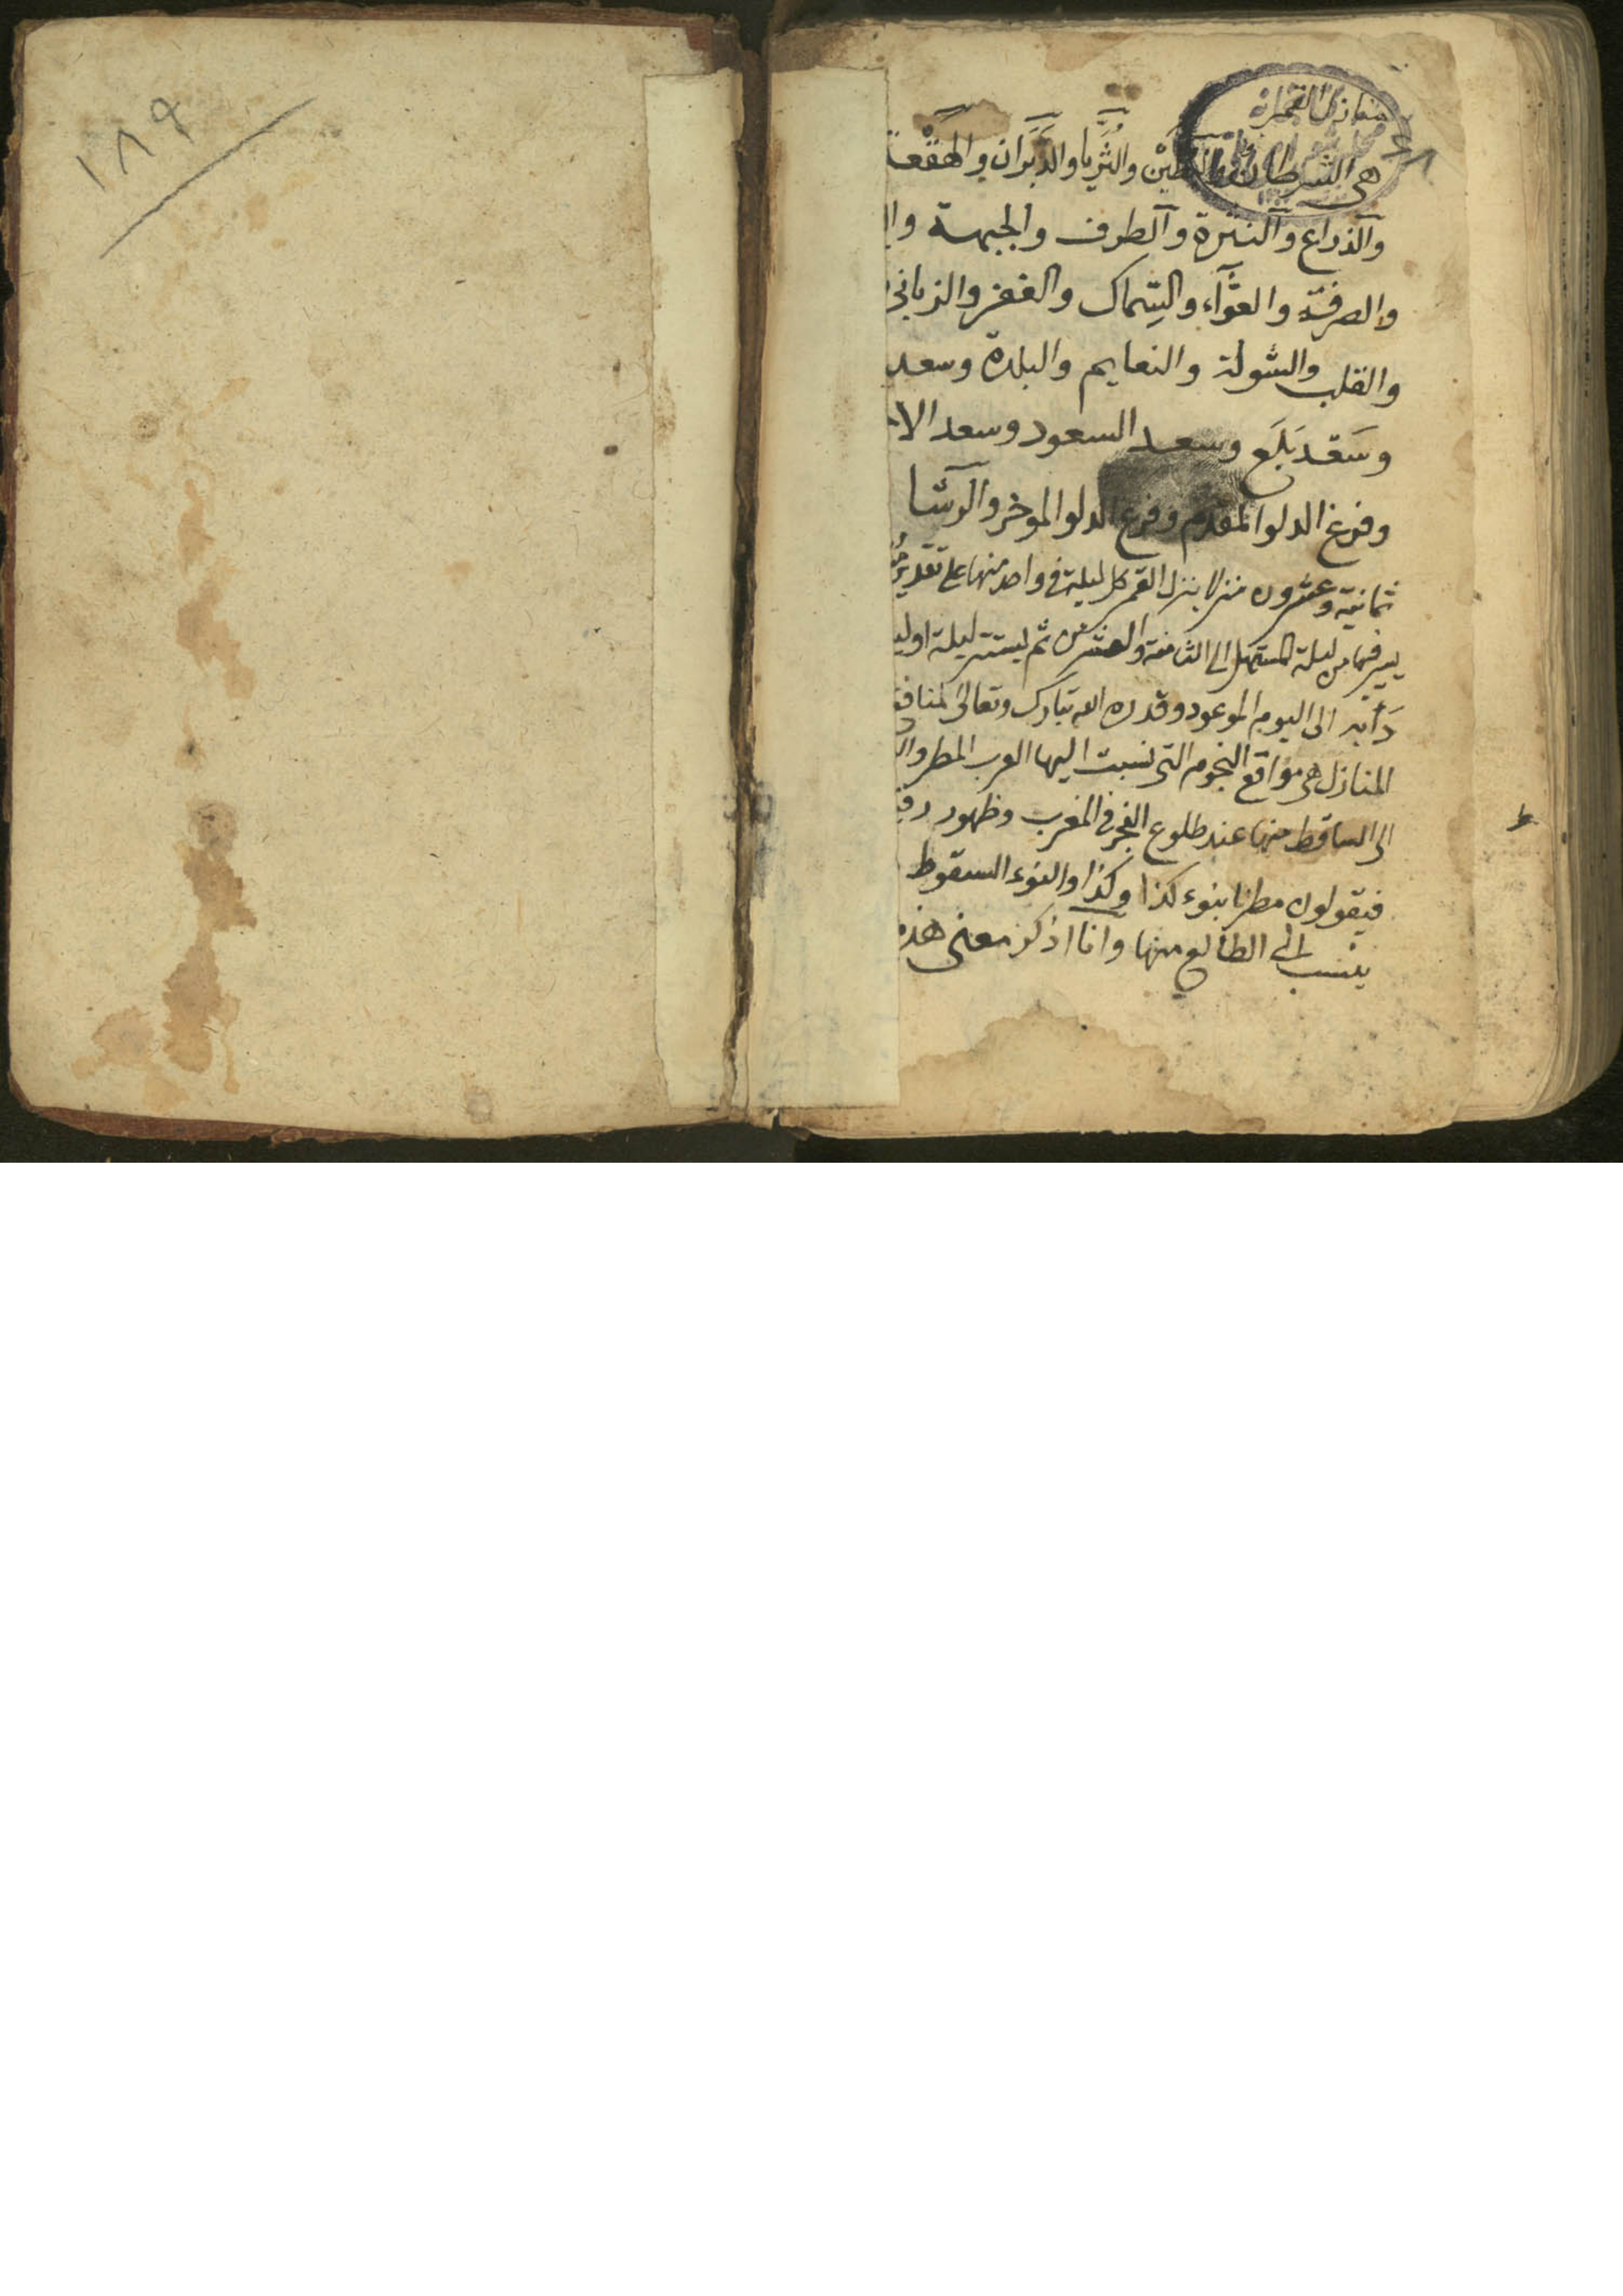 ١٨٩
منازل القمر
هي الشرطان والبُطَيْن والثُّرَيا والدَّبَران والهَقْعة
والذراع والنثرة والطرف والجبهة
والصرفة والعوّآء والسِّماك والغفر والزباني
والقلب والشولة والنعايم والبلدة وسعد
وسَعْد بَلَع وسعد السعود وسعد الا
وفرغ الدلو المقدم وفرغ الدلو الموخر والرشا
ثمانية وعشرون منزلا ينزل القمر كل ليلة في واحد منها على تقدير
يسير فيها من ليلة المستهل الى الثامنة والعشرين ثم يستتر ليلة او
دَأبه الى اليوم الموعود وقدره الله تبارك وتعالى لمنافع
المنازل هي مواقع النجوم التي نسبت اليها العرب المطر
الى الساقط منها عند طلوع الفجر في المغرب وظهور
فيقولون مطرنا بنوء كذا وكذا والنوء السقوط
ينسب الى الطالع منها وانا اذكر معنى هذه